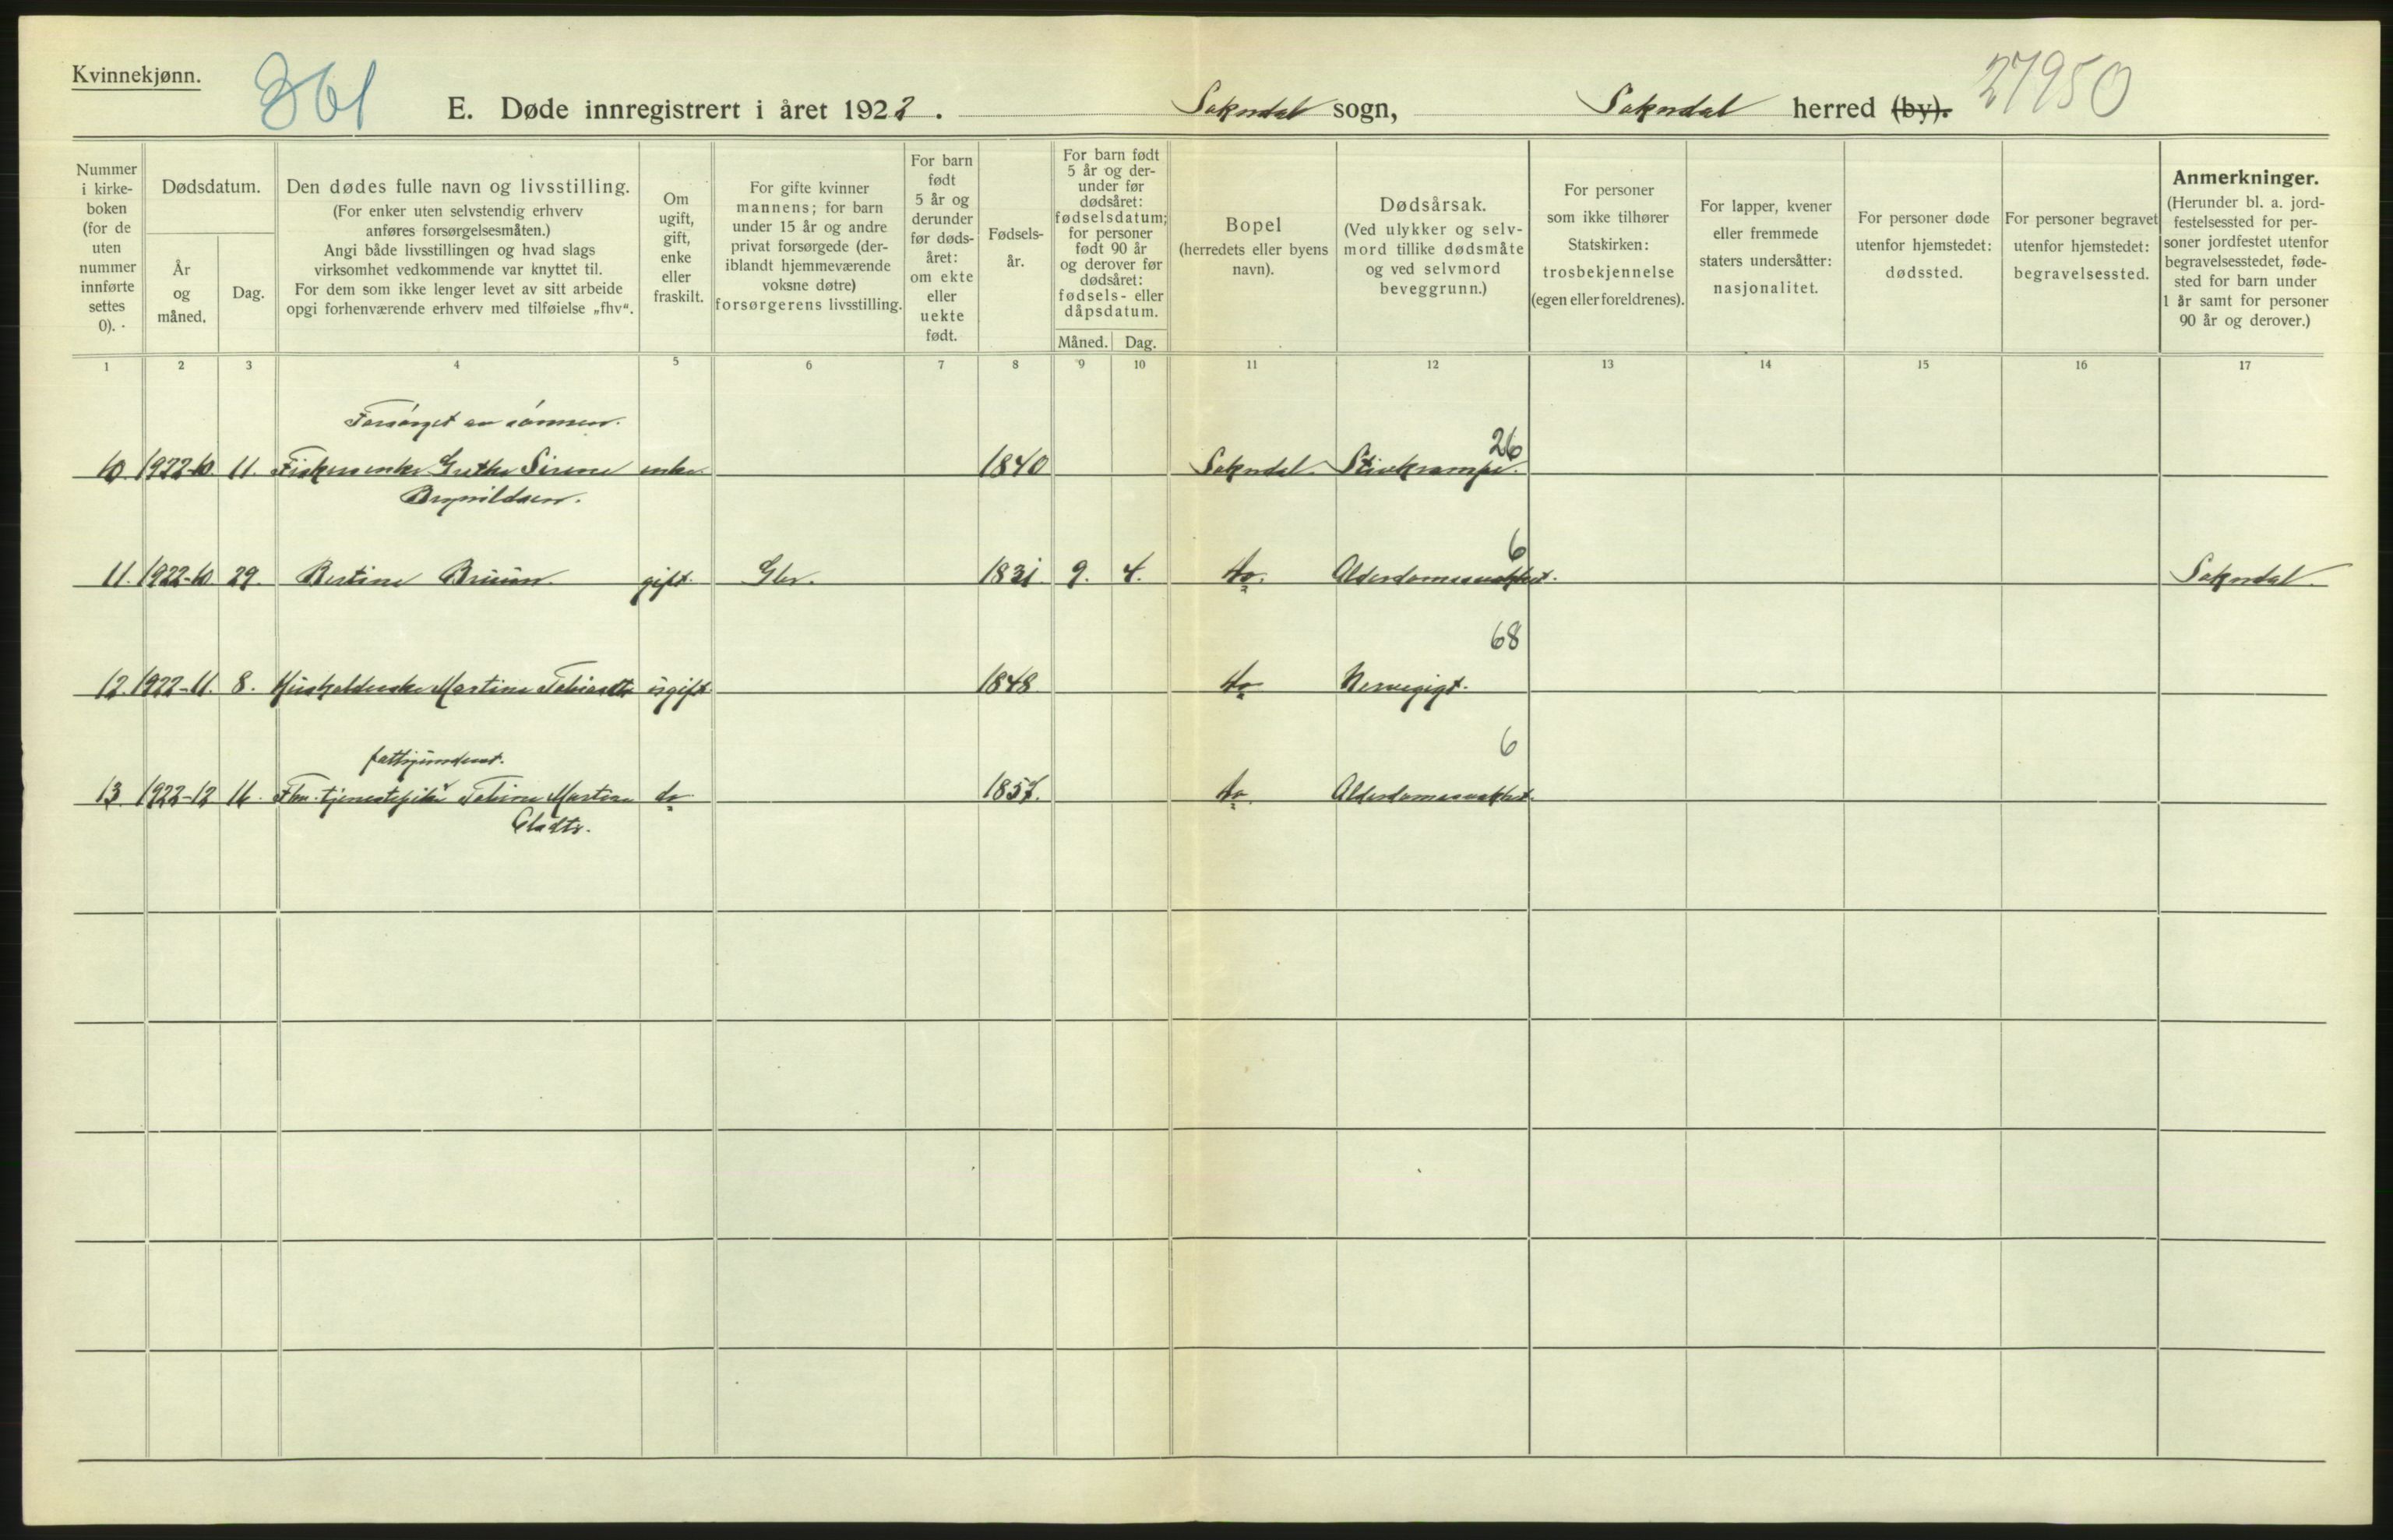 Kvinnekjønn.
361
E. Døde innregistrert i året 1922. Sokndal sogn, Sokndal herred (by).
27950
Nummer i kirke-boken (for de uten nummer innførte settes 0).
Dødsdatum.
År og måned.
Dag.
Den dødes fulle navn og livsstilling.
(For enker uten selvstendig erhverv anføres forsørgelsesmåten.)
Angi både livsstillingen og hvad slags virksomhet vedkommende var knyttet til.
For dem som ikke lenger levet av sitt arbeide opgi forhenværende erhverv med tilføielse „fhv“.
Om ugift, gift, enke eller fraskilt.
For gifte kvinner mannens; for barn under 15 år og andre privat forsørgede (der-iblandt hjemmeværende voksne døtre) forsørgerens livsstilling.
For barn født 5 år og derunder før døds-året: om ekte eller uekte født.
Fødsels-år.
For barn født 5 år og der-under før dødsåret: fødselsdatum; for personer født 90 år og derover før dødsåret: fødsels- eller dåpsdatum.
Måned. Dag.
Bopel (herredets eller byens navn).
Dødsårsak.
(Ved ulykker og selv-mord tillike dødsmåte og ved selvmord beveggrunn.)
For personer som ikke tilhører Statskirken: trosbekjennelse (egen eller foreldrenes).
For lapper, kvener eller fremmede staters undersåtter: nasjonalitet.
For personer døde utenfor hjemstedet: dødssted.
For personer begravet utenfor hjemstedet: begravelsessted.
Anmerkninger.
(Herunder bl. a. jord-festelsessted for per-soner jordfestet utenfor begravelsesstedet, føde-sted for barn under 1 år samt for personer 90 år og derover.)
1 2 3 4 5 6 7 8 9 10 11 12 13 14 15 16 17
Forsørget av sønnen.
26
10. 1922-10. 11. Fiskerenke Grethe Sirene enke 1840 Sokndal Stivkrampe.
6
11. 1922-10. 29. Bertine Bruun. gift. 1831 9. 4. do. Alderdomssvakhet. Sokndal.
68
12. 1922-11. 8. Husholderske Martine Tobiasdtr ugift. 1848 do Nervegigt.
fattigunderst.
6
13. 1922-12 16. Fhv. tjenestepike Tobine Martine do 1857. do. Alderdomssvakhet.